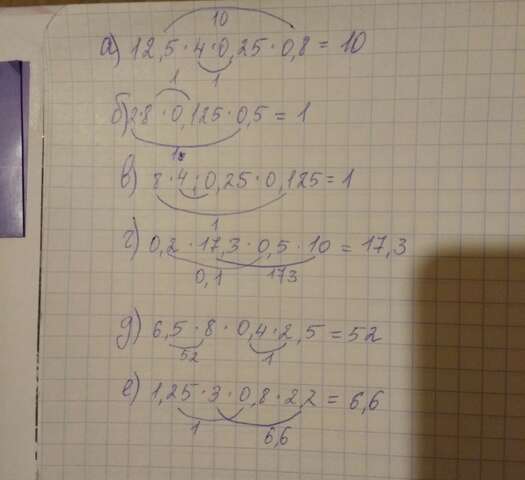 10
а) 12,5 · 4 · 0,25 · 0,8 = 10
1
1
б) 2·8 · 0,125 · 0,5 = 1
1
в) 8 · 4 · 0,25 · 0,125 = 1
1
г) 0,2 · 17,3 · 0,5 · 10 = 17,3
0,1 173
д) 6,5 · 8 · 0,4 · 2,5 = 52
52 1
е) 1,25 · 3 · 0,8 · 2,2 = 6,6
1 6,6